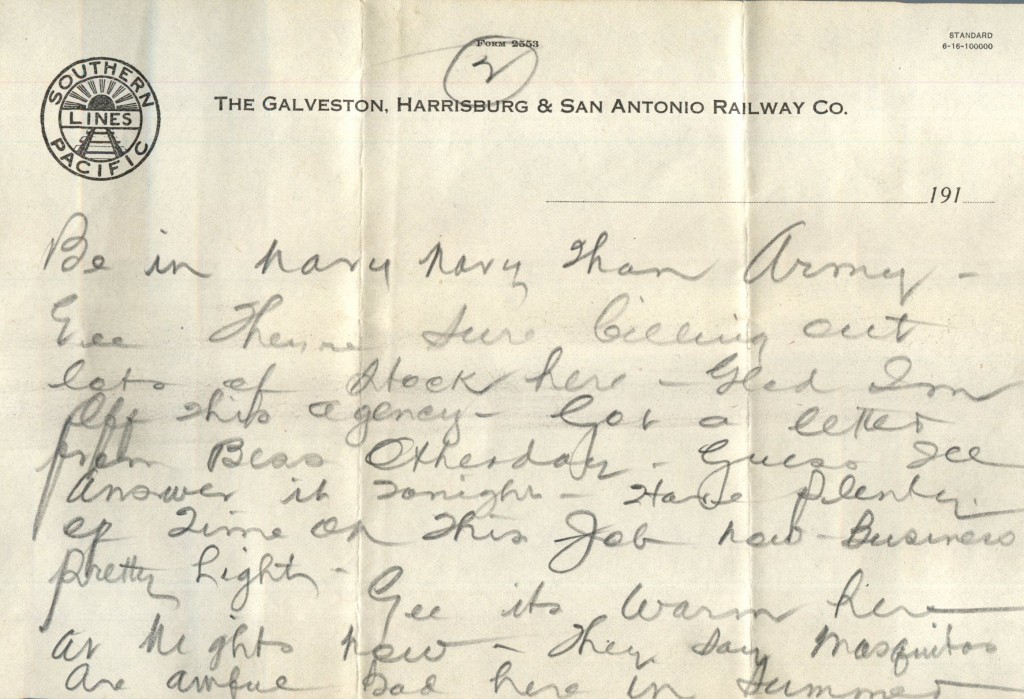 FORM 2553
2
STANDARD
6-16-100000
SOUTHERN PACIFIC
LINES
THE GALVESTON, HARRISBURG & SAN ANTONIO RAILWAY CO.
191
Be in navy navy than Army -
Gee They're sure billing out
lots of stock here - Glad Im
Off this agency - Got a letter
from Bess Otherday - Guess Ill
Answer it Tonight - Have plenty
of Time on This Job now - Business
pretty Light -
Gee its Warm here
at Nights now - They say Mosquitos
are awful bad here in Summer -